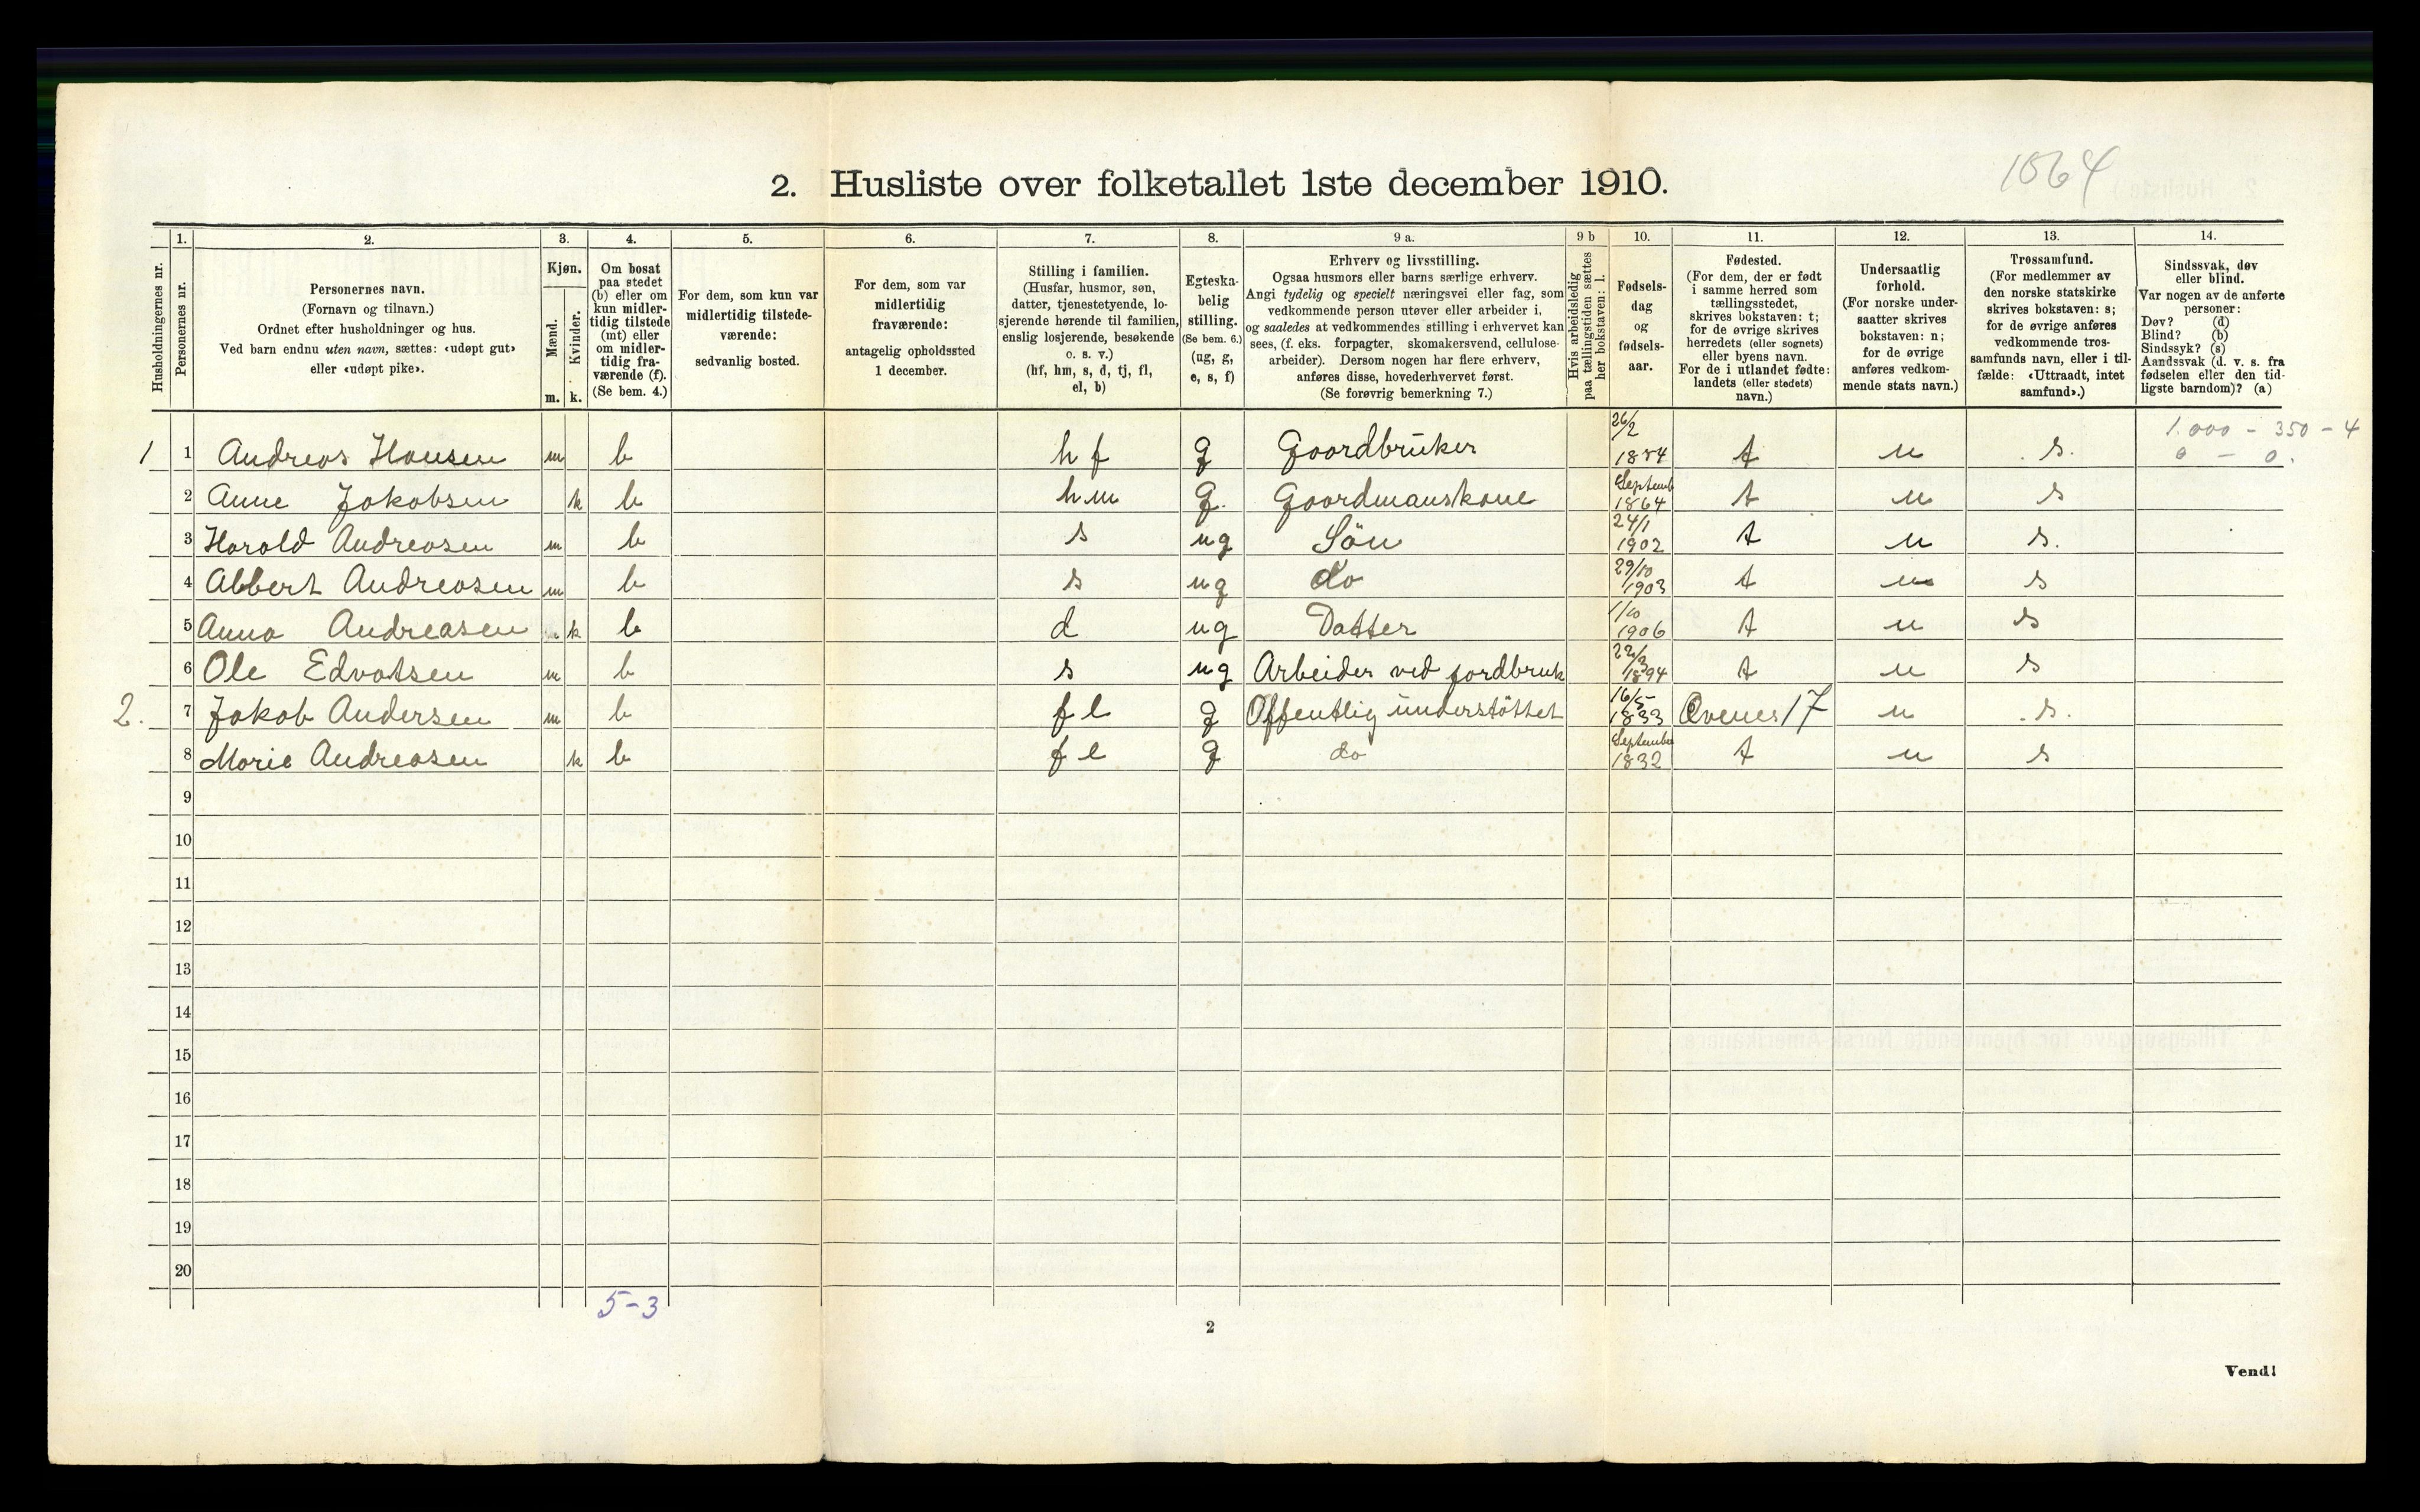 1064
2. Husliste over folketallet 1ste december 1910.
Husholdningernes nr.
1.
Personernes nr.
2.
Personernes navn.
(Fornavn og tilnavn.)
Ordnet efter husholdninger og hus.
Ved barn endnu uten navn, sættes: «udøpt gut»
eller «udøpt pike».
3.
Kjøn.
Mænd.
Kvinder.
m. k.
4.
Om bosat
paa stedet
(b) eller om
kun midler-
tidig tilstede
(mt) eller
om midler-
tidig fra-
værende (f).
(Se bem. 4.)
5.
For dem, som kun var
midlertidig tilstede-
værende:
sedvanlig bosted.
6.
For dem, som var
midlertidig
fraværende:
antagelig opholdssted
1 december.
7.
Stilling i familien.
(Husfar, husmor, søn,
datter, tjenestetyende, lo-
sjerende hørende til familien,
enslig losjerende, besøkende
o. s. v.)
(hf, hm, s, d, tj, fl,
el, b)
8.
Egteska-
belig
stilling.
(Se bem. 6.)
(ug, g,
e, s, f)
9 a.
Erhverv og livsstilling.
Ogsaa husmors eller barns særlige erhverv.
Angi tydelig og specielt næringsvei eller fag, som
vedkommende person utøver eller arbeider i,
og saaledes at vedkommendes stilling i erhvervet kan
sees, (f. eks. forpagter, skomakersvend, cellulose-
arbeider). Dersom nogen har flere erhverv,
anføres disse, hovederhvervet først.
(Se forøvrig bemerkning 7.)
9 b
Hvis arbeidsledig
paa tællingstiden sættes
her bokstaven: l.
10.
Fødsels-
dag
og
fødsels-
aar.
11.
Fødested.
(For dem, der er født
i samme herred som
tællingsstedet,
skrives bokstaven: t;
for de øvrige skrives
herredets (eller sognets)
eller byens navn.
For de i utlandet fødte:
landets (eller stedets)
navn.)
12.
Undersaatlig
forhold.
(For norske under-
saatter skrives
bokstaven: n;
for de øvrige
anføres vedkom-
mende stats navn.)
13.
Trossamfund.
(For medlemmer av
den norske statskirke
skrives bokstaven: s;
for de øvrige anføres
vedkommende tros-
samfunds navn, eller i til-
fælde: «Uttraadt, intet
samfund».)
14.
Sindssvak, døv
eller blind.
Var nogen av de anførte
personer:
Døv? (d)
Blind? (b)
Sindssyk? (s)
Aandssvak (d. v. s. fra
fødselen eller den tid-
ligste barndom)? (a)
1 1 Andreas Hansen m b h f g Gaardbruker 26/2 1854 t n s. 1.000 - 350 - 4
0 - 0.
2 Anne Jakobsen k b h m g. Gaardmanskone Septemb 1864 t n s
3 Harald Andreasen m b s ug Sön 24/1 1902 t n s.
4 Abbert Andreasen m b s ug do 29/10 1903 t n s
5 Anna Andreasen k b d ug Datter 1/10 1906 t n s
6 Ole Edvatsen m b s ug Arbeider ved jordbruk 22/3 1894 t n s
2. 7 Jakob Andersen m b f l g Offentlig understöttet 16/5 1833 Evenes 17 n s.
8 Marie Andreasen k b f l g do September 1832 t n s
9
10
11
12
13
14
15
16
17
18
19
20
5-3
2
Vend!